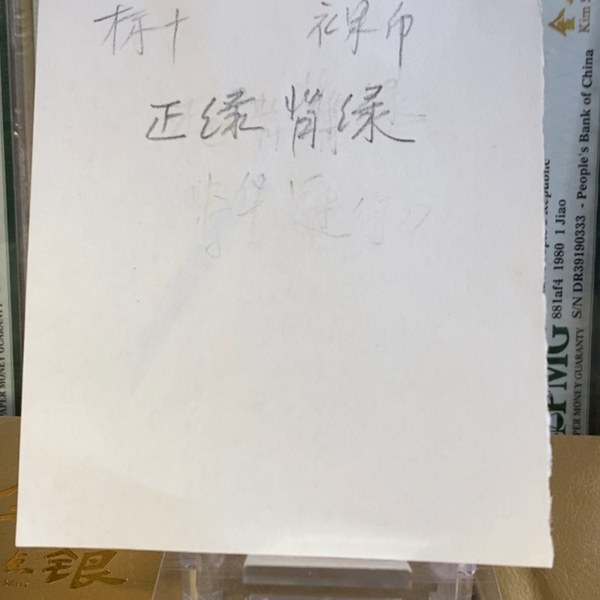 标十 裸印
正绿 背绿
金
Kim S
People's Republic
881af4 1980 1 Jiao
S/N DR39190333 - People's Bank of China
PMG
PER MONEY GUARANTY
APER MONEY GUARANTY
银